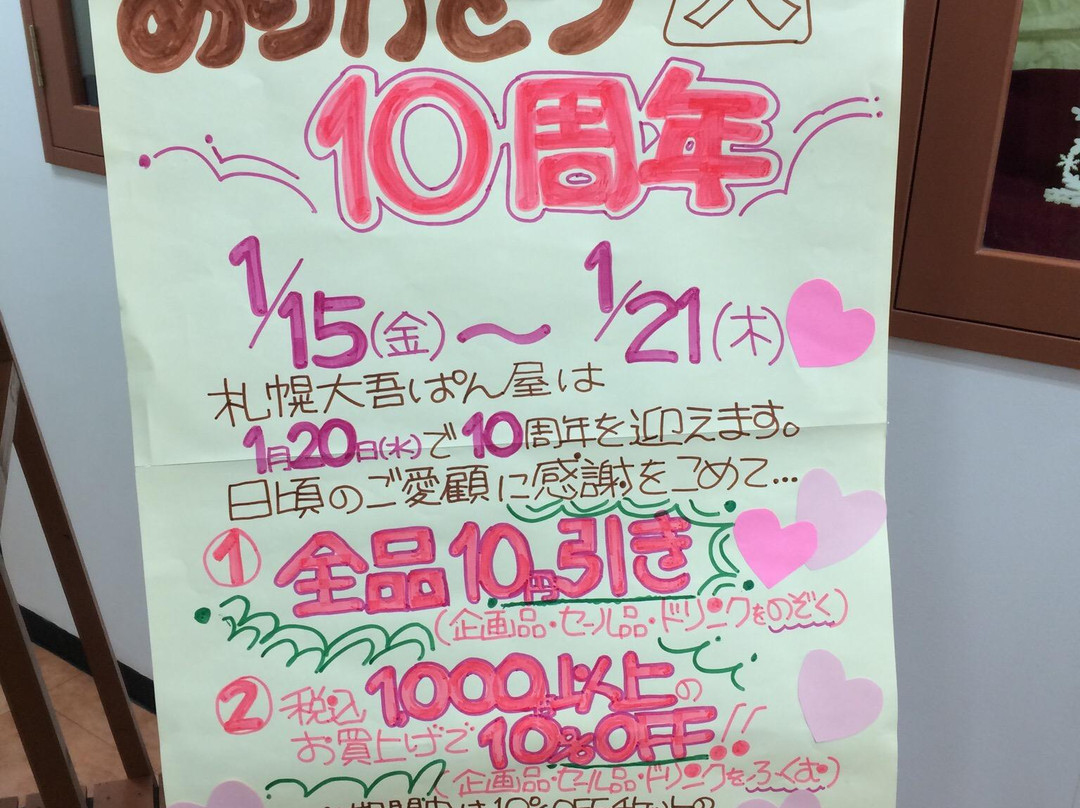 ありがとう
10周年
1/15(金)〜1/21(木)
札幌大吾ぱん屋は
1月20日(水)で10周年を迎えます。
日頃のご愛顧に感謝をこめて...
① 全品10円引き
(企画品・セール品・ドリンクをのぞく)
② 税込1000円以上の
お買上げで10%OFF!!
(企画品・セール品・ドリンクをふくむ)